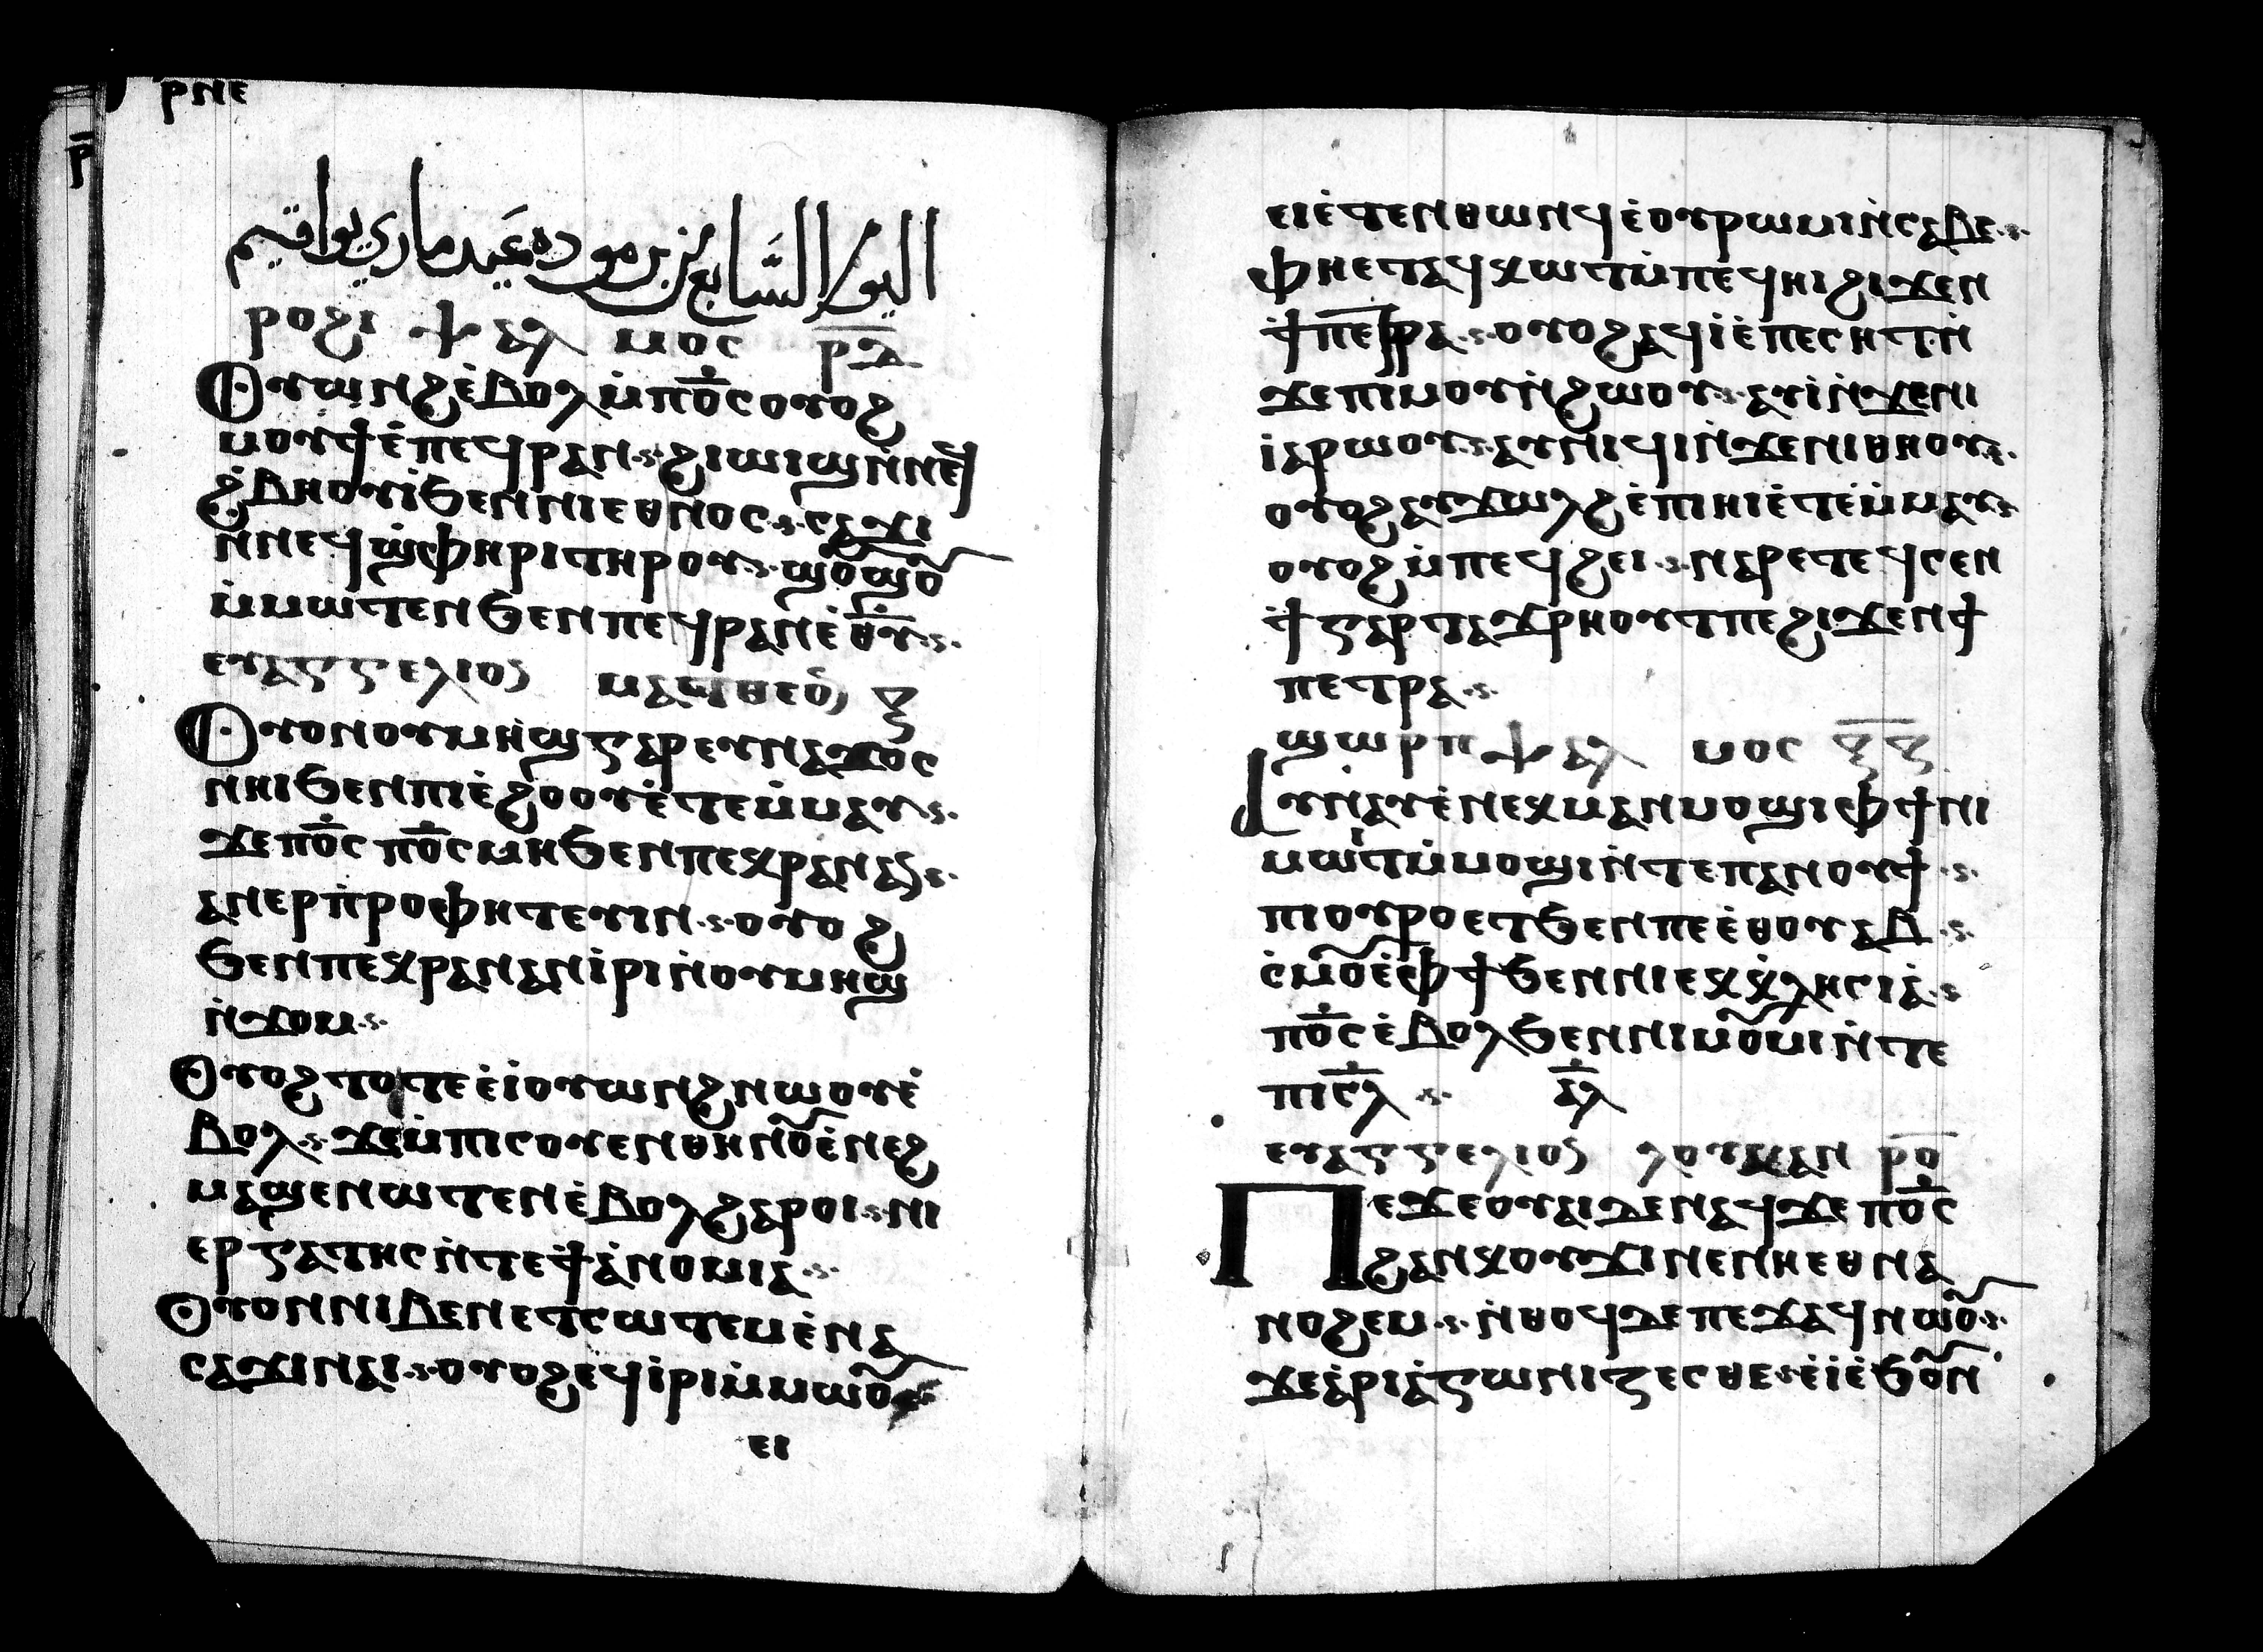 ⲣⲛⲉ
ⲣ̅
اليوم السَّابع من برموده عَيد ماري يواقيم
ⲣⲟⲩϩⲓ ⲯⲁⲗ ⲙⲟⲥ ⲣ̅ⲇ̅
Ⲟⲩⲱⲛϩ ⲉ̇ⲃⲟⲗ ⲙ̇ⲡⲟ̅ⲥ̅ ⲟⲩⲟϩ
ⲙⲟⲩϯ ⲉ̇ⲡⲉϥⲣⲁⲛ·ⲥ· ϩⲓⲱⲓϣ ⲛ̇ⲛⲉϥ
ϩ̇ⲃⲏⲟⲩⲓ̇ ϧⲉⲛ ⲛⲓⲉⲑⲛⲟⲥ·ⲥ· ⲥⲁϫⲓ
ⲛ̇ⲛⲉϥϣ̇ⲫⲏⲣⲓ ⲧⲏⲣⲟⲩ·ⲥ· ϣⲟ̃ϣⲟ̃
ⲙ̇ⲙⲱⲧⲉⲛ ϧⲉⲛ ⲡⲉϥⲣⲁⲛ ⲉ̇ⲑ̅ⲩ̅·ⲥ·
ⲉⲩⲁⲅⲅⲉⲗⲓⲟⲥ ⲙⲁⲧⲑⲉⲟ̅ ⲍ̅
Ⲟⲩⲟⲛ ⲟⲩⲙⲏϣ ⲅⲁⲣ ⲉⲩⲛⲁϫⲟⲥ
ⲛⲏⲓ ϧⲉⲛ ⲡⲓⲉ̇ϩⲟⲟⲩ ⲉ̇ⲧⲉⲙ̇ⲙⲁⲩ·ⲥ·
ϫⲉ ⲡⲟ̅ⲥ̅ ⲡⲟ̅ⲥ̅ ⲙⲏ ϧⲉⲛ ⲡⲉⲕⲣⲁⲛ ⲁⲛ·ⲥ·
ⲁⲛⲉⲣⲡ̇ⲣⲟⲫⲏⲧⲉⲩⲓⲛ·ⲥ· ⲟⲩⲟϩ
ϧⲉⲛ ⲡⲉⲕⲣⲁⲛ ⲁⲛⲓ̇ⲣⲓ ⲛ̇ⲟⲩⲙⲏϣ
ⲛ̇ϫⲟⲙ·ⲥ·
Ⲟⲩⲟϩ ⲧⲟⲧⲉ ⲉ̇ⲓ̇ⲟⲩⲱⲛϩ ⲛⲱⲟⲩ ⲉ̇
ⲃⲟⲗ·ⲥ· ϫⲉ ⲙ̇ⲡⲓⲥⲟⲩⲉⲛ ⲑⲏⲛⲟ̃ ⲉ̇ⲛⲉϩ
ⲙⲁϣⲉⲛⲱⲧⲉⲛ ⲉ̇ⲃⲟⲗ ϩⲁⲣⲟⲓ·ⲥ· ⲛⲓ
ⲉⲣⲅⲁⲧⲏⲥ ⲛ̇ⲧⲉ ϯⲁ̇ⲛⲟⲙⲓⲁ·ⲥ·
Ⲟⲩⲟⲛ ⲛⲓⲃⲉⲛ ⲉⲧⲥⲱⲧⲉⲙ ⲉ̇ⲛⲁ
ⲥⲁϫⲓ ⲛⲁⲓ·ⲥ· ⲟⲩⲟϩ ⲉϥⲓ̇ⲣⲓ ⲙ̇ⲙⲱⲟ̃·ⲥ·
ⲉⲓ
ⲉⲓⲉ̇ⲧⲉⲛⲑⲱⲛϥ ⲉ̇ⲟⲩⲣⲱⲙⲓ ⲛ̇ⲥⲁⲃⲉ·ⲥ·
ⲫⲏⲉⲧⲁϥⲕⲱⲧ ⲙ̇ⲡⲉϥⲏⲓ ϩⲓϫⲉⲛ
ϯⲡⲉⲧⲣⲁ·ⲥ· ⲟⲩⲟϩ ⲁϥⲓ̇ ⲉ̇ⲡⲉⲥⲏⲧ ⲛ̇
ϫⲉ ⲡⲓⲙⲟⲩⲛ̇ϩⲱⲟⲩ·ⲥ· ⲁⲩⲓ̇ ⲛ̇ϫⲉ ⲛⲓ
ⲓ̇ⲁⲣⲱⲟⲩ·ⲥ· ⲁⲩⲛⲓϥⲓ ⲛ̇ϫⲉ ⲛⲓⲑⲏⲟⲩ·ⲥ·
ⲟⲩⲟϩ ⲁⲩϫⲱⲗϩ ⲉ̇ⲡⲓⲏⲓ ⲉ̇ⲧⲉⲙ̇ⲙⲁⲩ·ⲥ·
ⲟⲩⲟϩ ⲙ̇ⲡⲉϥϩⲉⲓ·ⲥ· ⲛⲁⲣⲉ ⲧⲉϥⲥⲉⲛ
ϯ ⲅⲁⲣ ⲧⲁϫⲣⲏⲟⲩⲧ ⲡⲉ ϩⲓϫⲉⲛ ϯ
ⲡⲉⲧⲣⲁ·ⲥ·
ϣⲱⲣⲡ ⲯⲁⲗ ⲙⲟⲥ ⲝ̅ⲍ̅
Ⲁⲩⲛⲁⲩ ⲉ̇ⲛⲉⲕⲙⲁⲛⲙⲟϣⲓ ⲫϯ ⲛⲓ
ⲙⲱⲓⲧ ⲙ̇ⲙⲟϣⲓ ⲛ̇ⲧⲉ ⲡⲁⲛⲟⲩϯ·ⲥ·
ⲡⲓⲟⲩⲣⲟ ⲉⲧϧⲉⲛ ⲡⲉⲉ̇ⲑⲟⲩⲁⲃ·ⲥ·
ⲥ̇ⲙⲟ̃ ⲉ̇ⲫϯ ϧⲉⲛ ⲛⲓⲉⲕⲕ̇ⲗⲏⲥⲓⲁ̇·ⲥ
ⲡⲟ̅ⲥ̅ ⲉ̇ⲃⲟⲗ ϧⲉⲛ ⲛⲓⲙⲟ̃ⲙⲓ ⲛ̇ⲧⲉ
ⲡⲓⲥ̅ⲗ̅·ⲥ· ⲁ̅ⲗ̅
ⲉⲩⲁⲅⲅⲉⲗⲓⲟⲥ ⲗⲟⲩⲕⲁⲛ ⲣ̅ⲟ̅
Ⲡⲉϫⲉ ⲟⲩⲁⲓ ⲇⲉ ⲛⲁϥ ϫⲉ ⲡⲟ̅ⲥ̅
ϩⲁⲛⲕⲟⲩϫⲓ ⲛⲉ ⲛⲏⲉⲑⲛⲁ
ⲛⲟϩⲉⲙ·ⲥ· ⲛ̇ⲑⲟϥ ⲇⲉ ⲡⲉϫⲁϥ ⲛⲱⲟ̃·ⲥ·
ϫⲉ ⲁ̇ⲣⲓⲁ̇ⲅⲱⲛⲓⲍⲉⲥⲑⲉ·ⲥ ⲉ̇ⲓ̇ ⲉ̇ϧⲟ̃ⲛ